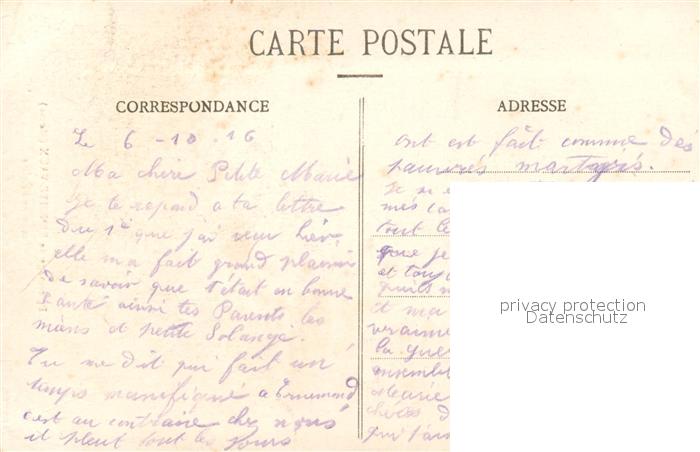 CARTE POSTALE
CORRESPONDANCE
Le 6-10.16
Ma chère Petite Marie
je te repond a ta lettre
Du 1er que j'ai reçu hier
elle ma fait grand plaisir
De savoir que t'était en bonne
Santé ainsi tes Parents les
miens et petite Solange.
Tu me dit qui fait un
temps manifique a Ermemond
c'est au contraire chez nous
il pleut tout les jours
ADRESSE
ont est fait comme des
pauvres martyrs.
Je
mes
tout le
que je
et
quils
et ma
vraime
la guer
ensembl
Marie
choses d
qui t'aim
privacy protection
Datenschutz